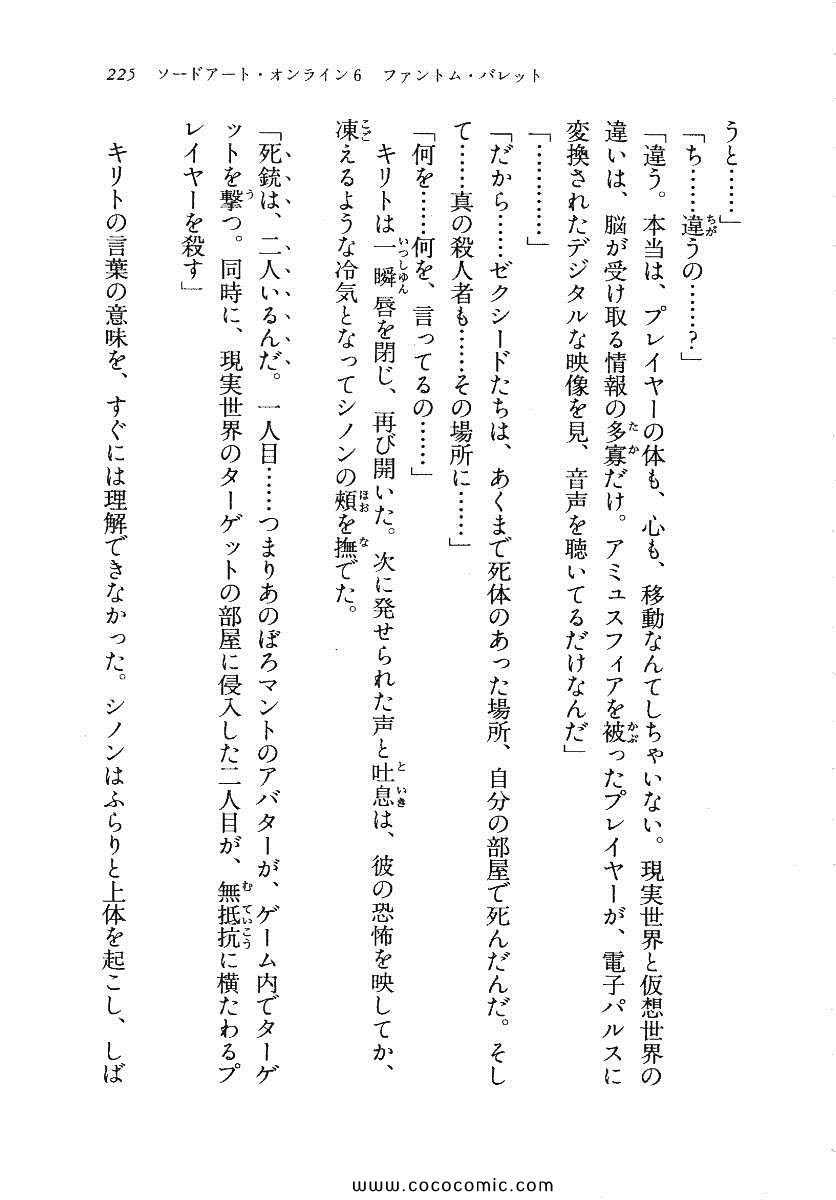 225　ソードアート・オンライン6　ファントム・バレット
うと……」
「ち……違うの……？」
「違う。本当は、プレイヤーの体も、心も、移動なんてしちゃいない。現実世界と仮想世界の
違いは、脳が受け取る情報の多寡だけ。アミュスフィアを被ったプレイヤーが、電子パルスに
変換されたデジタルな映像を見、音声を聴いてるだけなんだ」
「…………」
「だから……ゼクシードたちは、あくまで死体のあった場所、自分の部屋で死んだんだ。そし
て……真の殺人者も……その場所に……」
「何を……何を、言ってるの……」
キリトは一瞬唇を閉じ、再び開いた。次に発せられた声と吐息は、彼の恐怖を映してか、
凍えるような冷気となってシノンの頬を撫でた。
「死銃は、二人いるんだ。一人目……つまりあのぼろマントのアバターが、ゲーム内でターゲ
ットを撃つ。同時に、現実世界のターゲットの部屋に侵入した二人目が、無抵抗に横たわるプ
レイヤーを殺す」
キリトの言葉の意味を、すぐには理解できなかった。シノンはふらりと上体を起こし、しば
www.cococomic.com